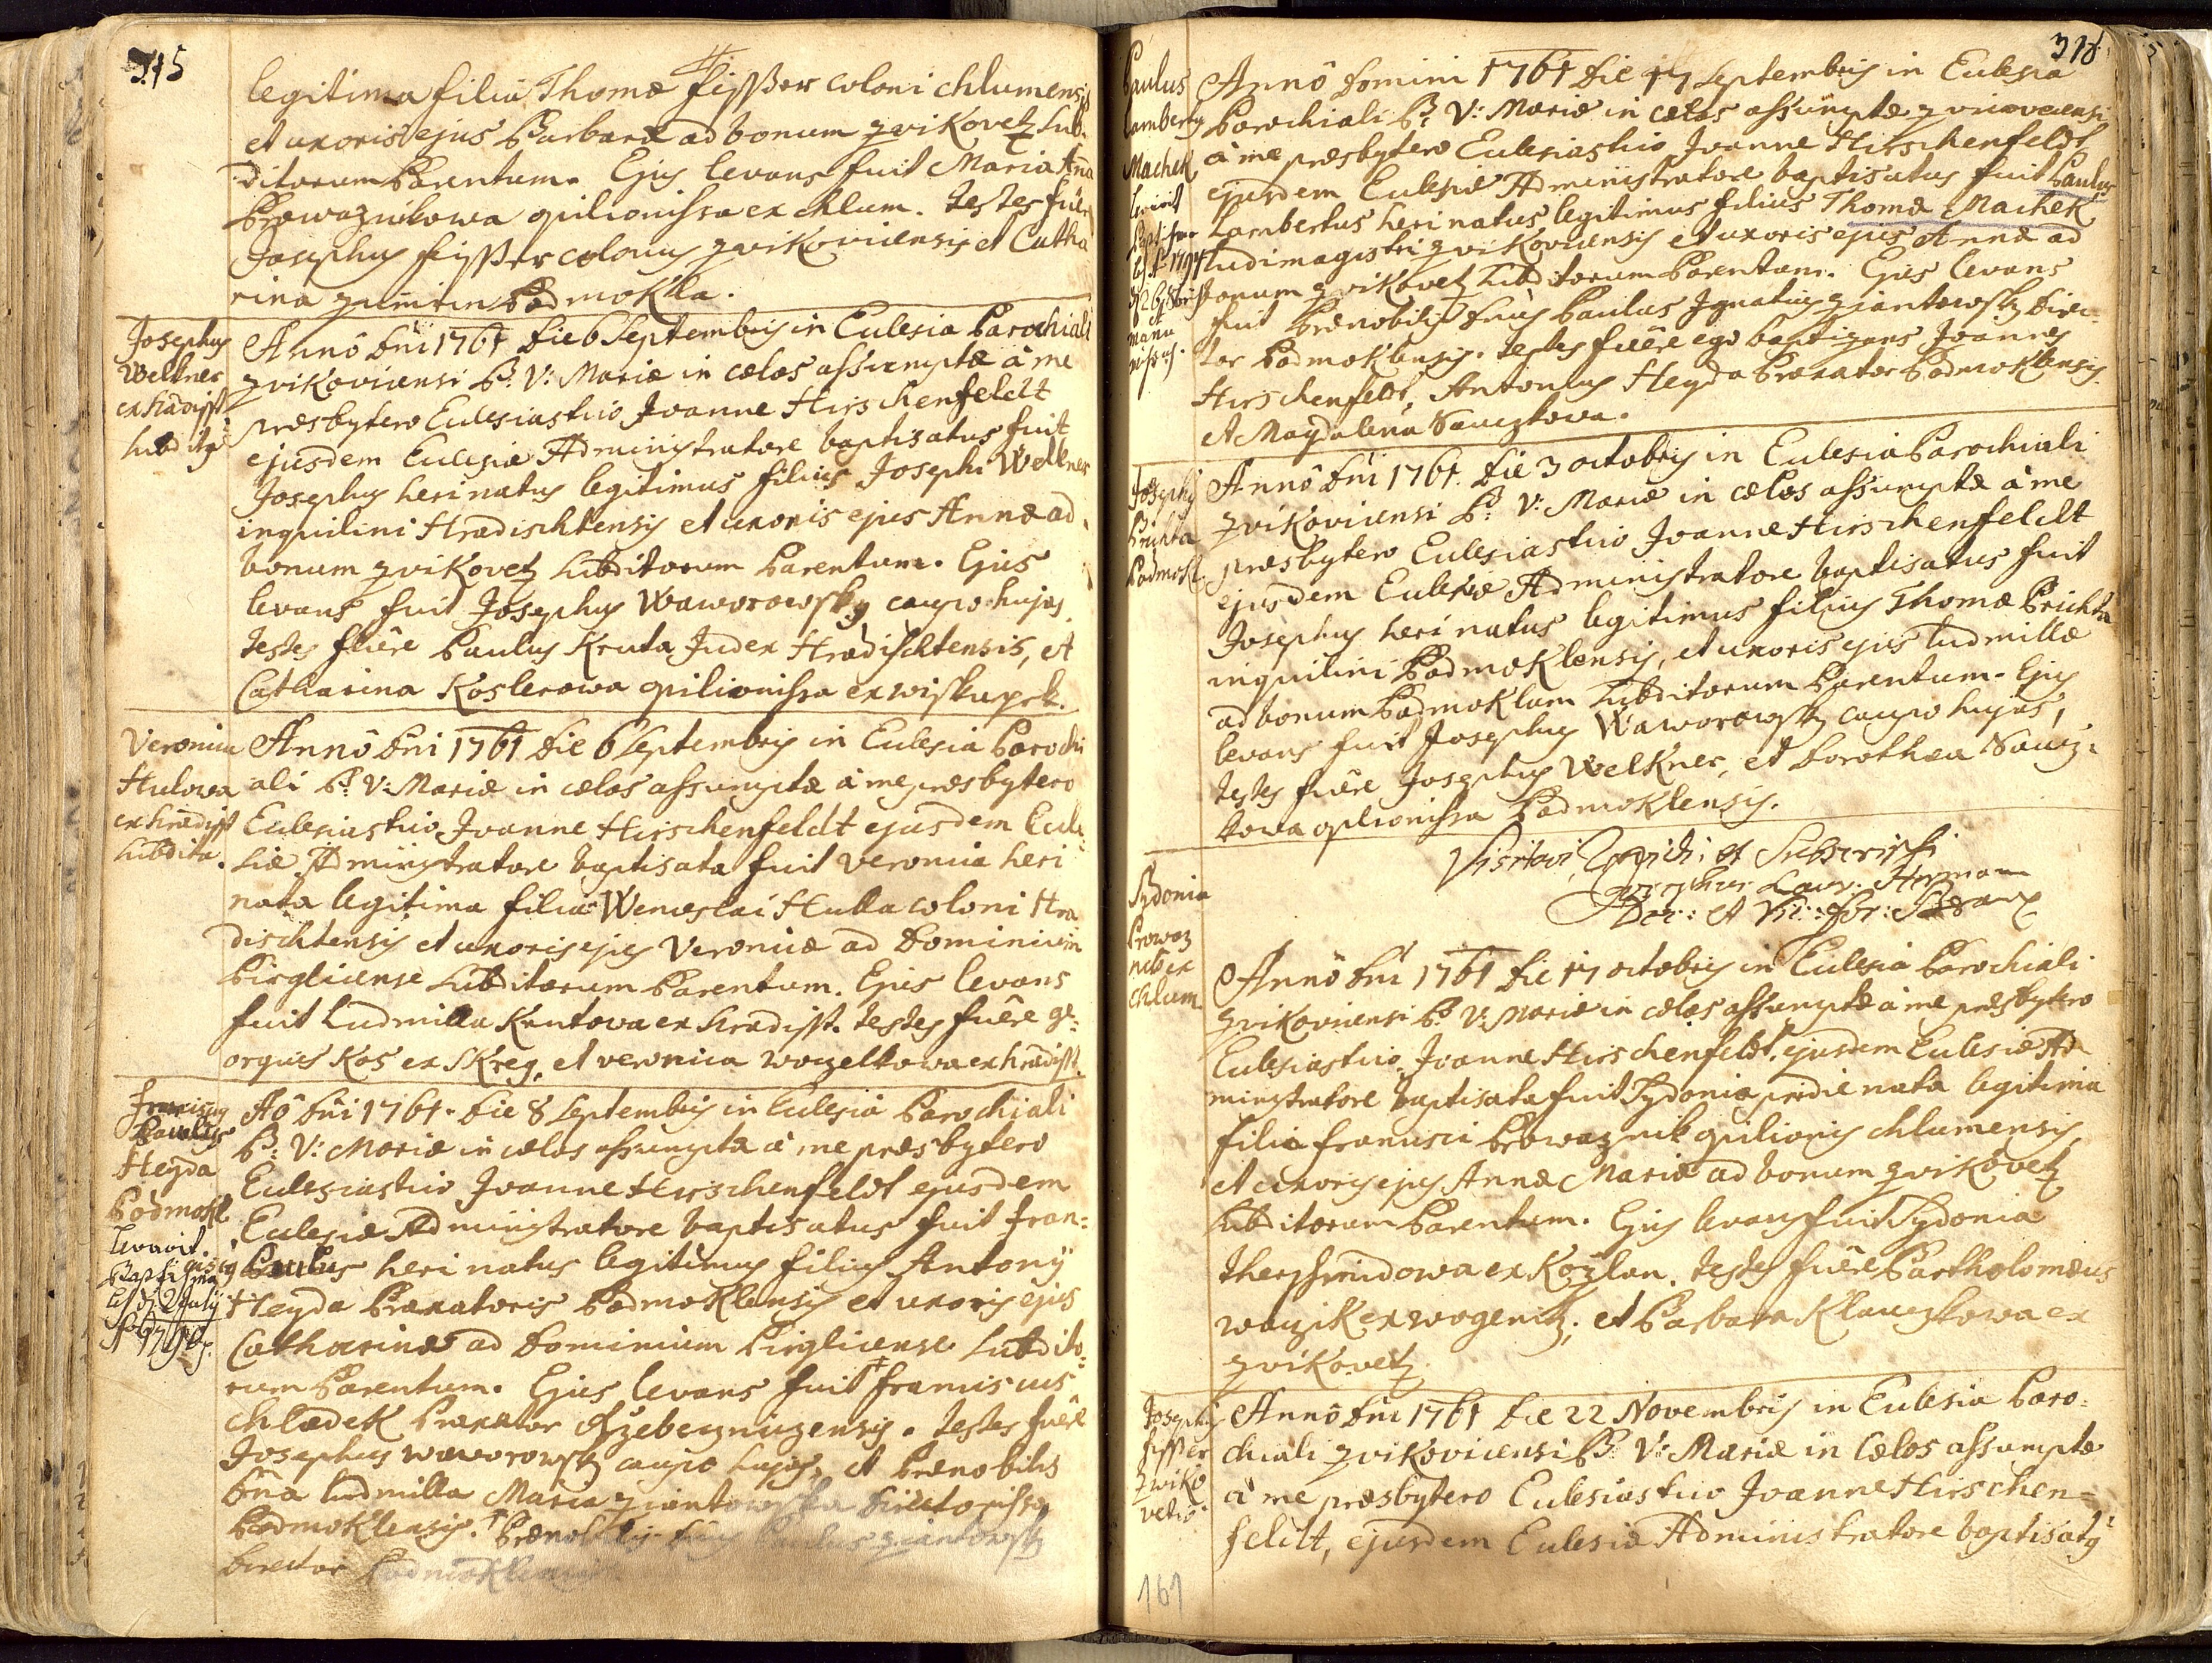 315
legitima filia Thomæ fisser coloni chlumensis
et uxoris ejus Barbaræ ad bonum zvikovetz sub-
ditorum Parentum. Ejus levans fuit Maria Aña
Prowaznikowa opilionissa ex chlum. testes fuêr
Josephus fisser colonus zvikoviensis et Catha
rina ex Podmokla.
Josephus
Welkner
ex hradisst
subditus
Annô Dñi 1761 die 6 Septembris in Eulesia Parochiali
zvikoviensi B: V: Mariæ in cælos assumptæ à me
præsbytero Eulesiastico Joanne Hirschenfeldt
ejusdem Eulesiæ Administratore baptisatus fuit
Josephus heri natus legitimus filius Josephi Welkner
inquilini Hradischtensis et uxoris ejus Annæ ad
bonum zvikovetz subditorum Parentum. Ejus
levans fuit Josephus Waworowsky caupo hujas.
testes fuêre Paulus Kruta Judex Hradischtensis, et
Catharina Koslerowa opilionissa ex wiskuprk.
Veronica
Hulowa
ex hradisst
subdita.
Annô Dñi 1761 die 6 Septembris in Eulesia Parochi
ali B: V: Mariæ in cælos assumptæ à me præsbytero
Eulesiastico Joanne Hirschenfeldt ejusdem Eule
siæ Administratore baptisata fuit Veronica heri
nata legitima filia Wenceslai Hulla coloni Hra
dischtensis et uxoris ejus Veronicæ ad Dominium
Pirglicense subditorum Parentum. Ejus levans
fuit Ludmilla Krutova ex hradisst. testes fuêre ge=
orgius Kos ex SKreg, et veronica wozelkowa ex hradisst.
Franciscus
Paulus
Heyda
Podmokl
levavit
Baptisma
les dj 2 July
Aô Dñi 1761. die 8 Septembris in Eulesia Parochiali
B: V: Mariæ in cælos assumptæ à me præsbytero
Eulesiastico Joanne Hirschenfeldt ejusdem
Eulesiæ Administratore baptisatus fuit Fran=
ciscus Paulus heri natus legitimus filius Antony
Heyda Braxatoris Podmoklensis et uxoris ejus
Catharinæ ad Dominium Pirglicense subdito=
rum Parentum. Ejus levans fuit + franciscus
chladek Braxator
testes fuêre
Josephus waworowsky caupo hujas, et Prænobilis
Dña Ludmilla Maria ziantowska Directorissa
Podmoklensis. + Prænobilis Dñus Paulus ziantowsky
Director Podmoklensis
318
Paulus
Lamberty
Machek
levavit
1794
manu
Anno Domini 1761 die 17 Septembris in Eulesia
Parochiali B: V: Mariæ in cælos assumptæ zvicoveiensi
à me præsbytero Eulesiastico Joanne Hirschenfeldt
ejusdem Eulesiæ Administratore baptisatus fuit Paulus
Lambertus heri natus legitimus filius Thomæ Machek
ludimagistri zvikoviensis et uxoris ejus Annæ ad
bonum zvikovetz subditorum Parentum. Ejus levans
fuit Prænobilis Dñus Paulus Ignatius ziantowsky Direc-
tor Podmoklensis. testes fuêre ego baptizans Joannes
Hirschenfeldt, Antonius Heyda Braxator Podmoklensis
et Magdalena Sauczkova.
Josephus
Prichta
Podmokl.
Annô Dñi 1761. die 3 octobris in Eulesia Parochiali
zvikoviensi B: V: Mariæ in cælos assumptæ à me
præsbytero Eulesiastico Joanne Hirschenfeldt
ejusdem Eulesiæ Administratore baptisatus fuit
Josephus heri natus legitimus filius Thomæ Prichta
inquilini Podmoklensis, et uxoris ejus Ludmillæ
ad bonum Podmoklam subditorum Parentum. Ejus
levans fuit Josephus Waworowsky caupo hujas,
testes fuêre Josephus Welkner, et Dorothea Saucz=
kowa opilionissa Podmoklensis.
Visitavi, et Subscripsi
Josephus Laur. Herman
Dec: et Vic: for:
Sydonia
Prowaz
nik ex
chlum
Annô Dñi 1761 die 17 octobris in Eulesia Parochiali
zvikoviensi B: V: Mariæ in cælos assumptæ à me præsbytero
Eulesiastico Joanne Hirschenfeldt, ejusdem Eulesiæ Ad
ministratore baptisata fuit Sydonia pridie nata legitima
filia francisci Prowaznik opilionis chlumensis,
et uxoris ejus Annæ Mariæ ad bonum zvikovetz
subditorum Parentum. Ejus levans fuit Sydonia
ex Kozlan. testes fuêre Bartholomæus
waczik ex wogenitz, et Barbara Klauczkowa ex
zvikovetz
Josephus
fisser
zwiko
vetio
Annô Dñi 1761 die 22 Novembris in Eulesia Paro=
chiali zvikoviciensi B: V: Mariæ in Cælos assumptæ
à me præsbytero Eulesiastico Joanne Hirschen=
feldt, ejusdem Eulesiæ Administratore baptisatus
161